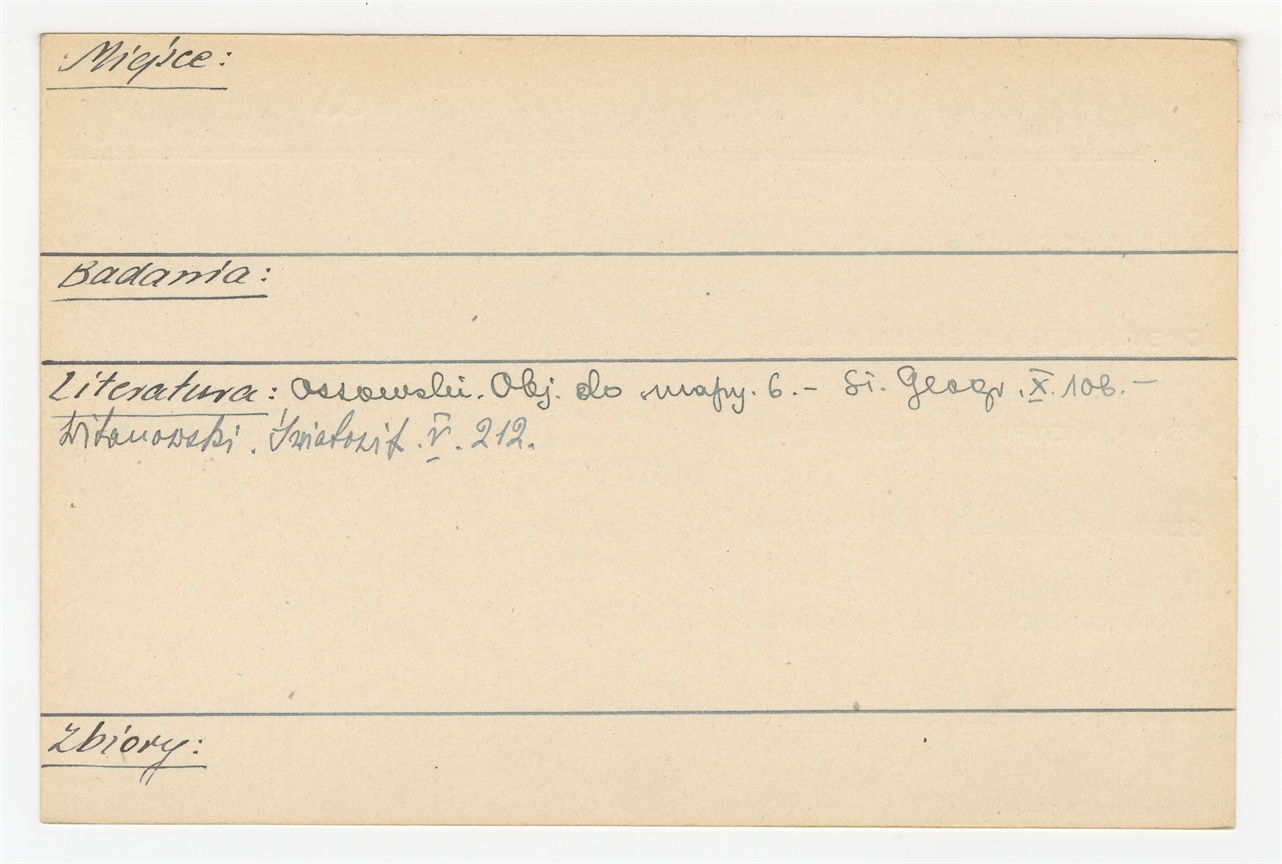 Miejsce:
Badania:
Literatura: Ossowski. Obj. do mapy. 6. – Sł. Geogr. X. 106. –
Witanowski. Światowit. V. 212.
Zbiory: